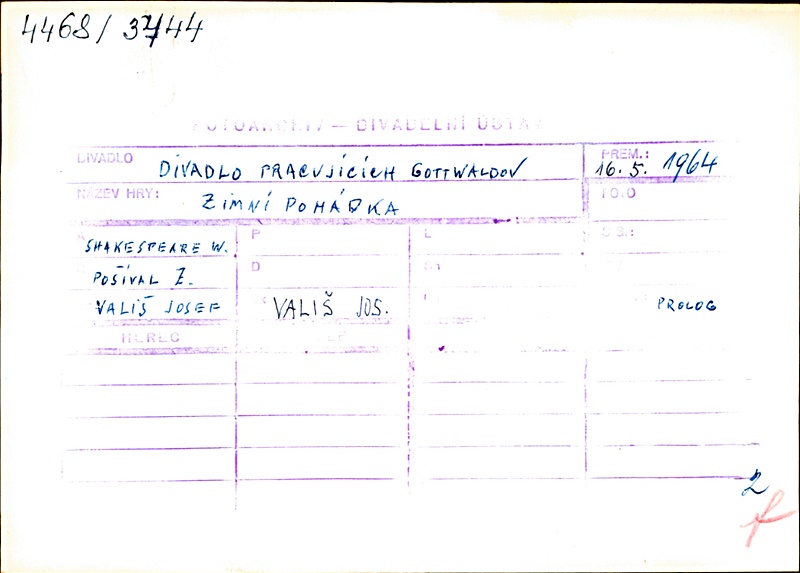 4468/3744
FOTOARCHIV — DIVADELNÍ ÚSTAV
DIVADLO DIVADLO PRACUJÍCÍCH GOTTWALDOV PREM.: 16.5. 1964
NÁZEV HRY: ZIMNÍ POHÁDKA
SHAKESPEARE W. P L
POŠÍVAL Z. D
VALIŠ JOSEF VALIŠ JOS. PROLOG
HEREC
2